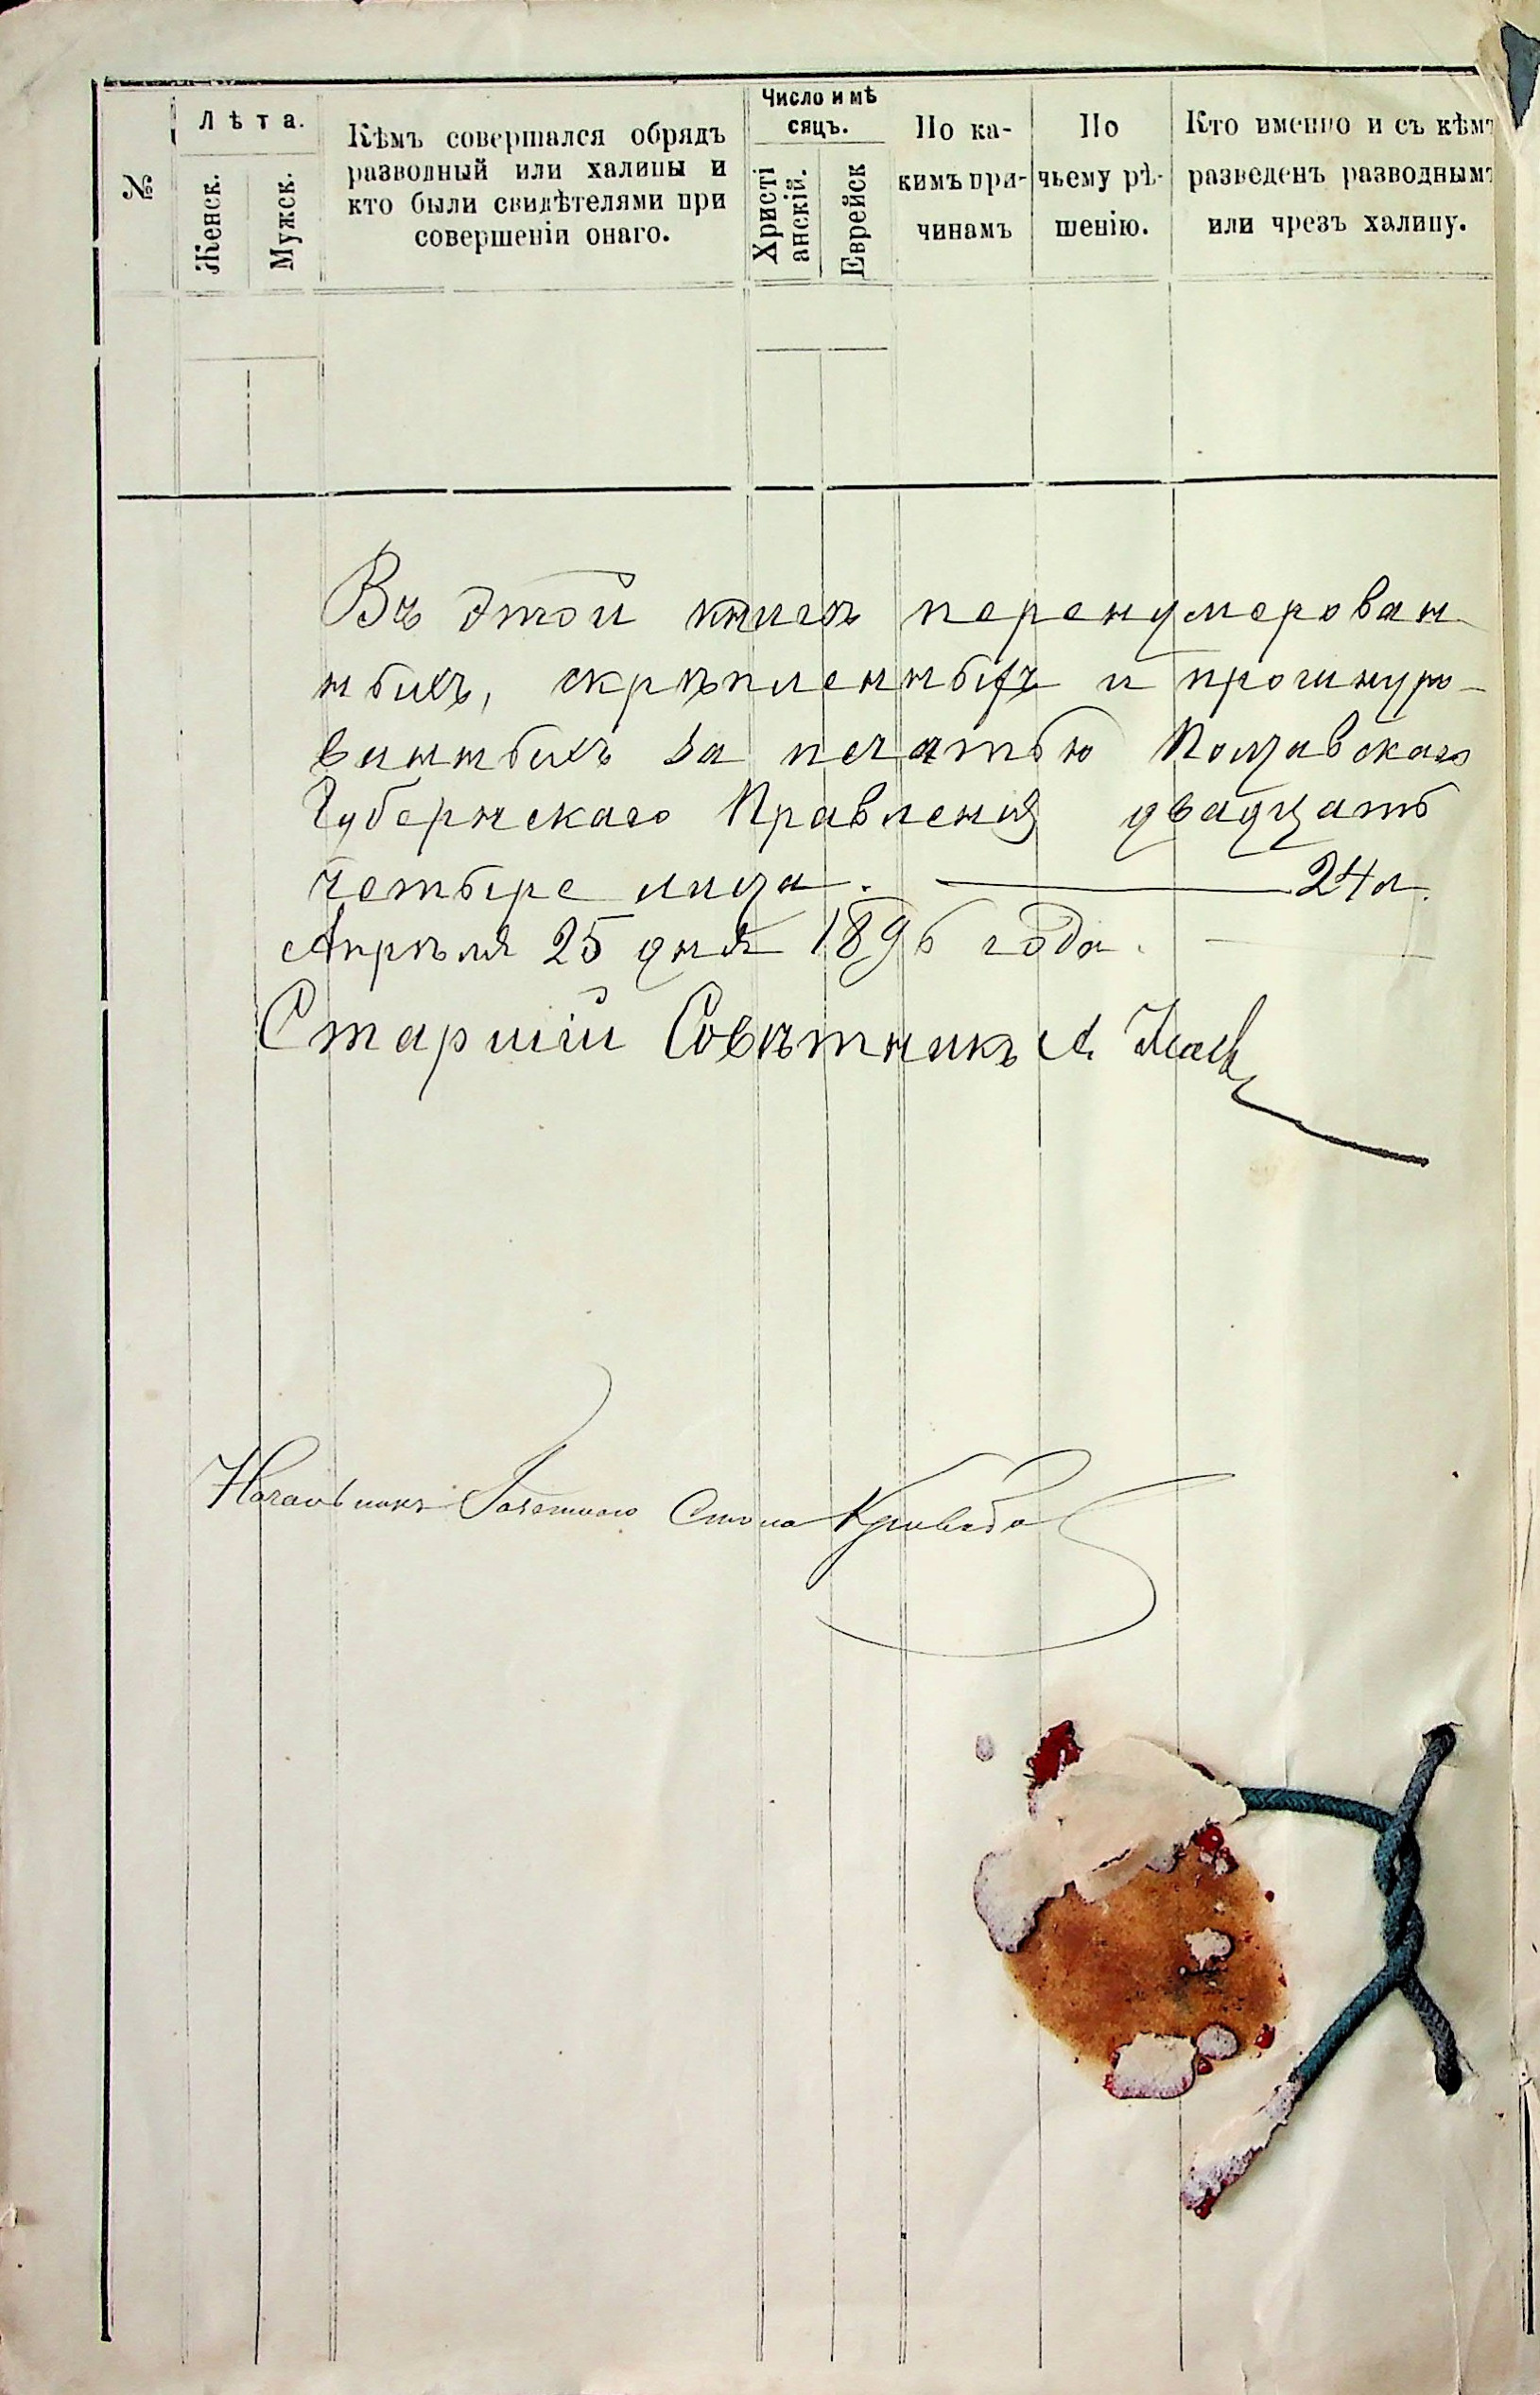 №
Лѣта.
Женск.
Мужск.
Кѣмъ совершался обрядъ
разводный или халицы и
кто были свидѣтелями при
совершеніи онаго.
Число и мѣ
сяцъ.
Христі
анскій.
Еврейск
По ка-
кимъ при-
чинамъ
По
чьему рѣ-
шенію.
Кто именно и съ кѣмъ
разведенъ разводнымъ
или чрезъ халицу.
Въ этой книгѣ перенумерован
ныхъ, скрѣпленныхъ и прошнуро-
ванныхъ за печатью Полтавскаго
Губернскаго Правленія двадцать
четыре листа. 24 л.
Апрѣля 25 дня 1896 года.
Старшій Совѣтникъ А.
Начальникъ Газетнаго Стола